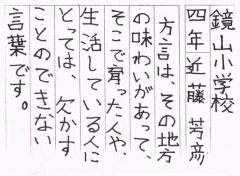 鏡山小学校
四年近藤芳彦
方言は、その地方
の味わいがあって、
そこで育った人や、
生活している人に
とっては、欠かす
ことのできない
言葉です。